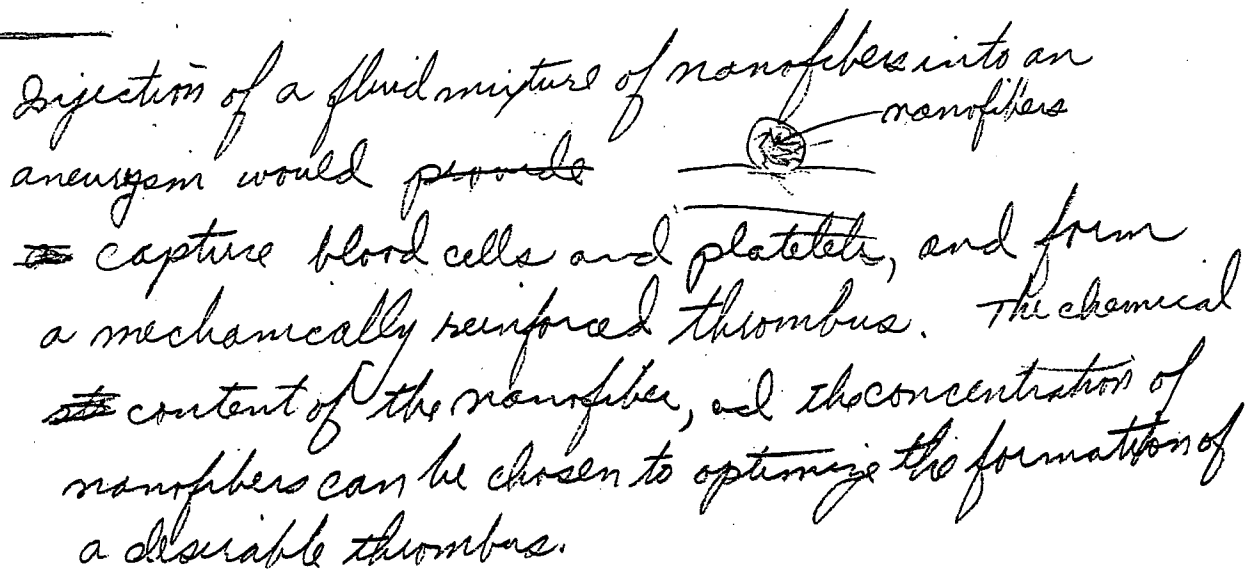 Injection of a fluid mixture of nanofibers into an
nanofibers
aneurysm would provide
capture blood cells and platelets, and form
a mechanically reinforced thrombus. The chemical
content of the nanofiber, and the concentration of
nanofibers can be chosen to optimize the formation of
a desirable thrombus.